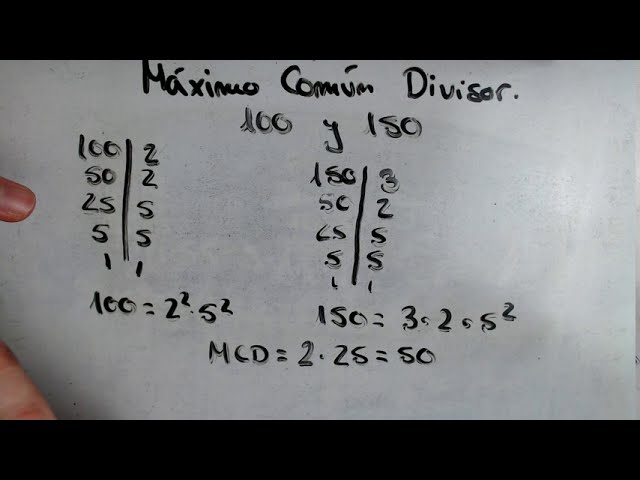 Máximo Común Divisor.
100 y 150
100 | 2
50 | 2
25 | 5
5 | 5
1 | 1
150 | 3
50 | 2
25 | 5
5 | 5
1 | 1
100 = 2²·5²
150 = 3·2·5²
MCD = 2·25 = 50